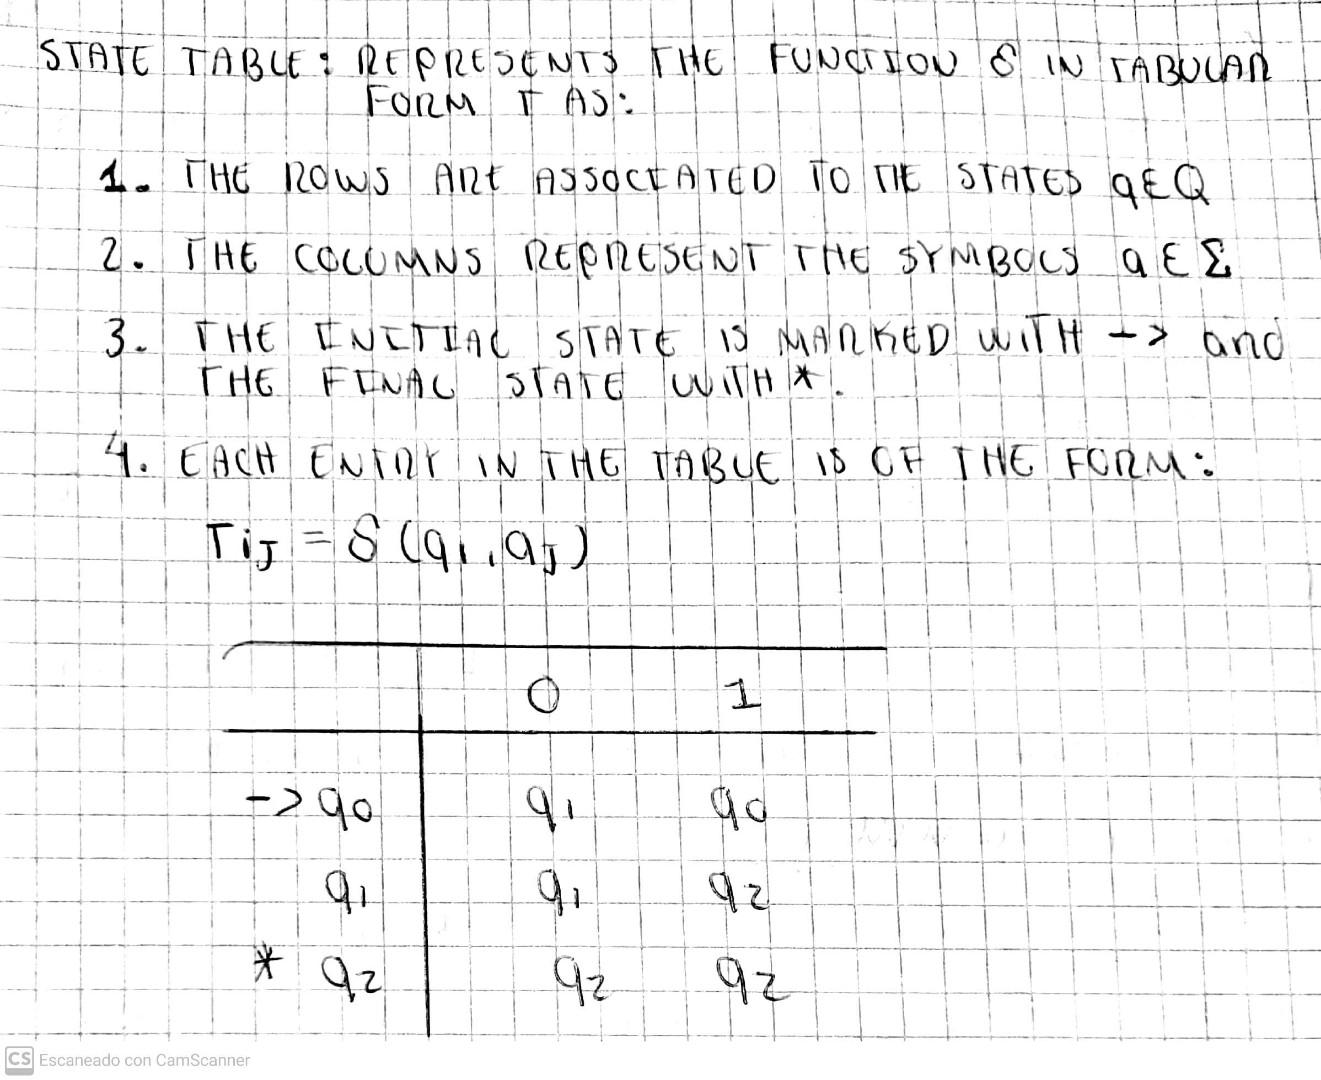 STATE TABLE: REPRESENTS THE FUNCTION δ IN TABULAR
FORM T AS:
1. THE ROWS ARE ASSOCIATED TO THE STATES q∈Q
2. THE COLUMNS REPRESENT THE SYMBOLS a∈Σ
3. THE INITIAL STATE IS MARKED WITH -> and
THE FINAL STATE WITH *.
4. EACH ENTRY IN THE TABLE IS OF THE FORM:
Tij = δ(qi, aj)
0 1
-> q0 q1 q0
q1 q1 q2
* q2 q2 q2
CS Escaneado con CamScanner